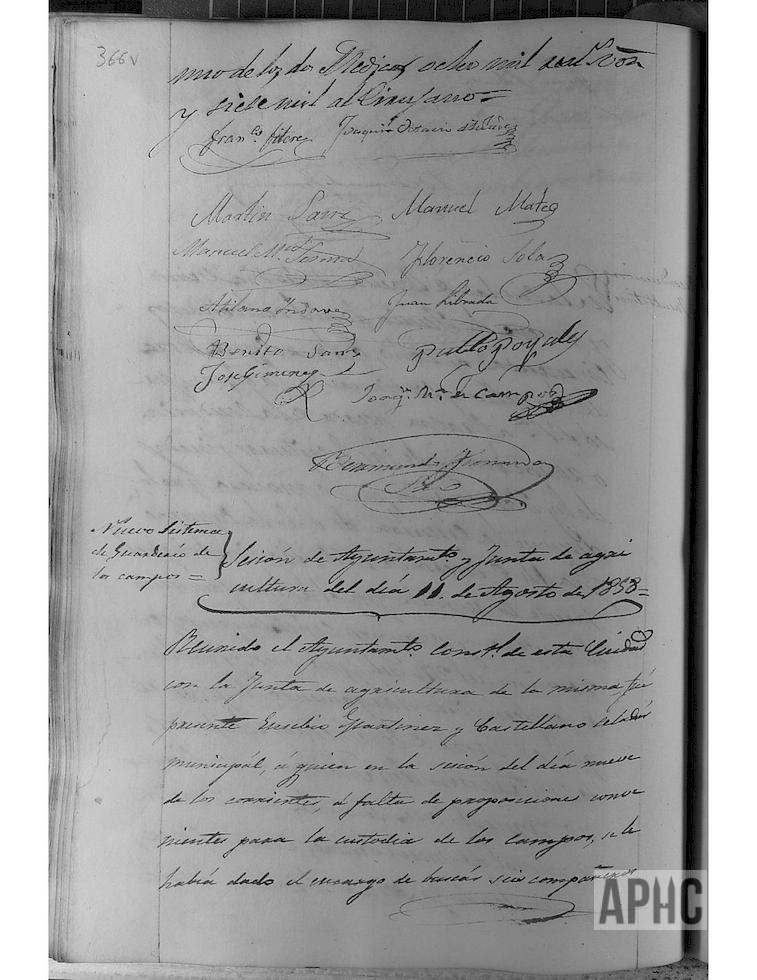 366v
uno de los dos Medicos ocho mil real
y siete mil al Cirujano =
Fran.co
Joaquin
Martin Sanz Manuel Mateo
Manuel M.a Florencio Sola
Atilano Juan Librada
Benito Sanz Pablo
Jose Gimenez
Joaq.n M.a de Campos
Fernando
Nuevo Sistema
de Guarderio de
los campos =
Sesión de Ayuntam.to y Junta de agri
cultura del día 11 de Agosto de 1858 =
Reunido el Ayuntam.to Const.l de esta Ciudad
con la Junta de agricultura de la misma fué
presente Eusebio y Castellano celador
municipál, á quien en la sesión del día nueve
de los corrientes, á falta de proposiciones conve
nientes para la custodia de los campos, se le
había dado el encargo de buscar seis compañeros
APHC